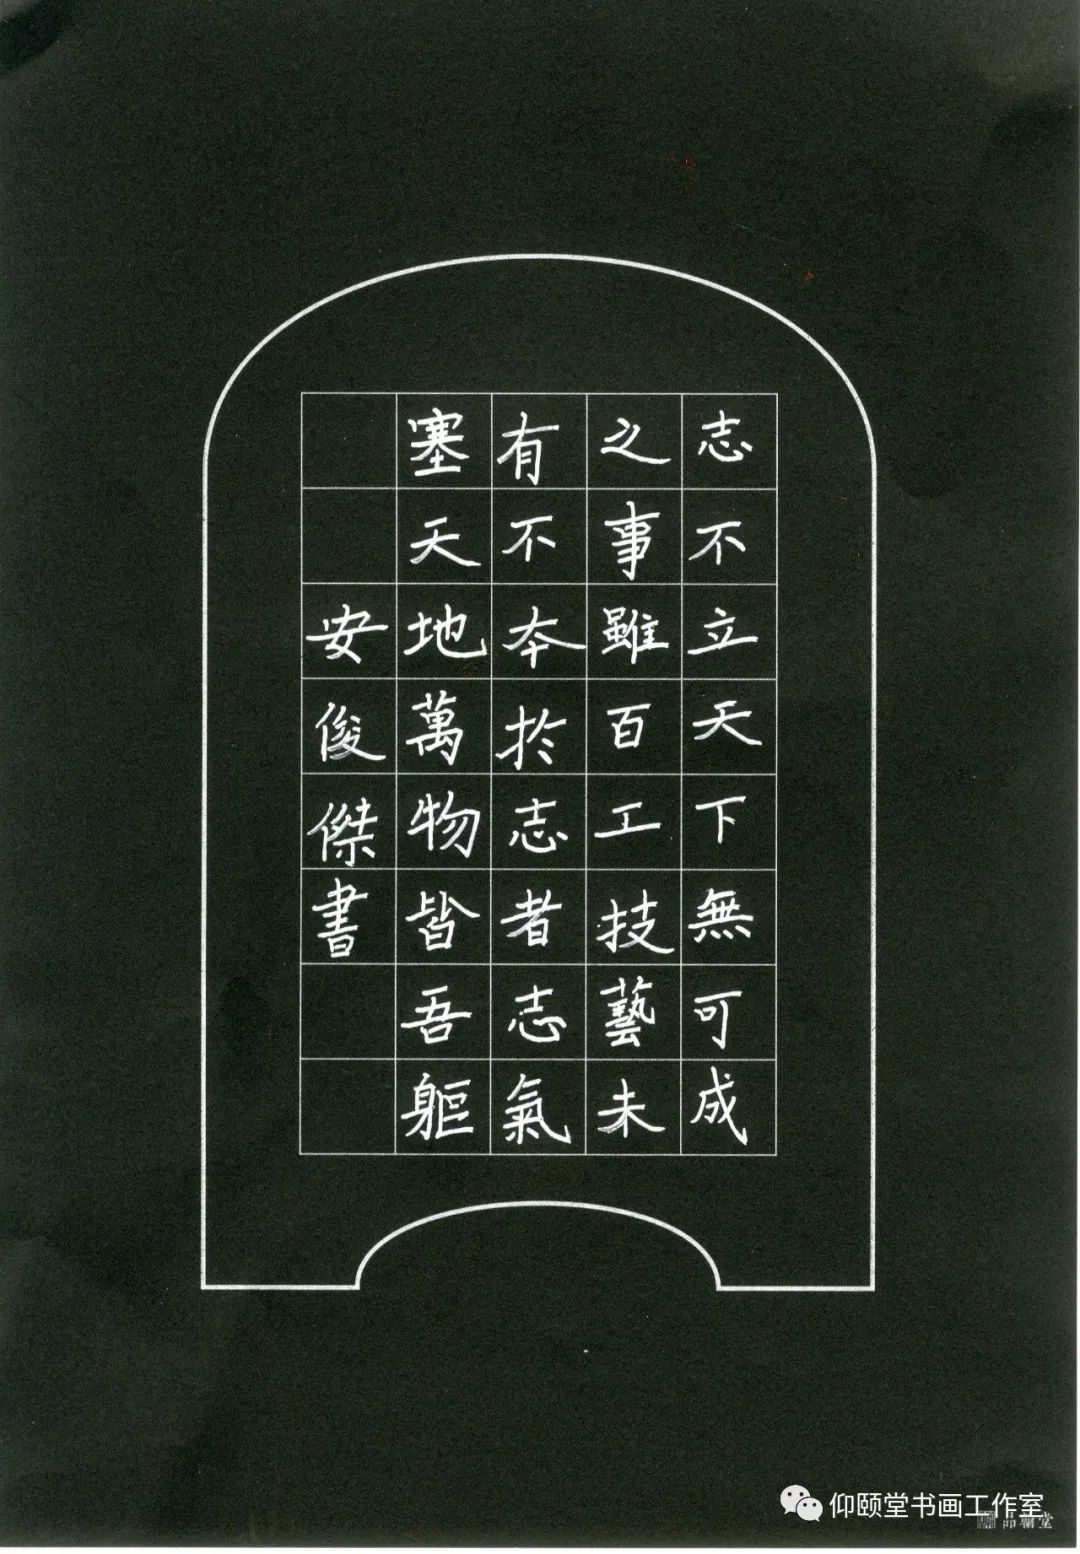 志不立天下無可成
之事雖百工技藝未
有不本於志者志氣
塞天地萬物皆吾軀
安俊傑書
仰颐堂书画工作室